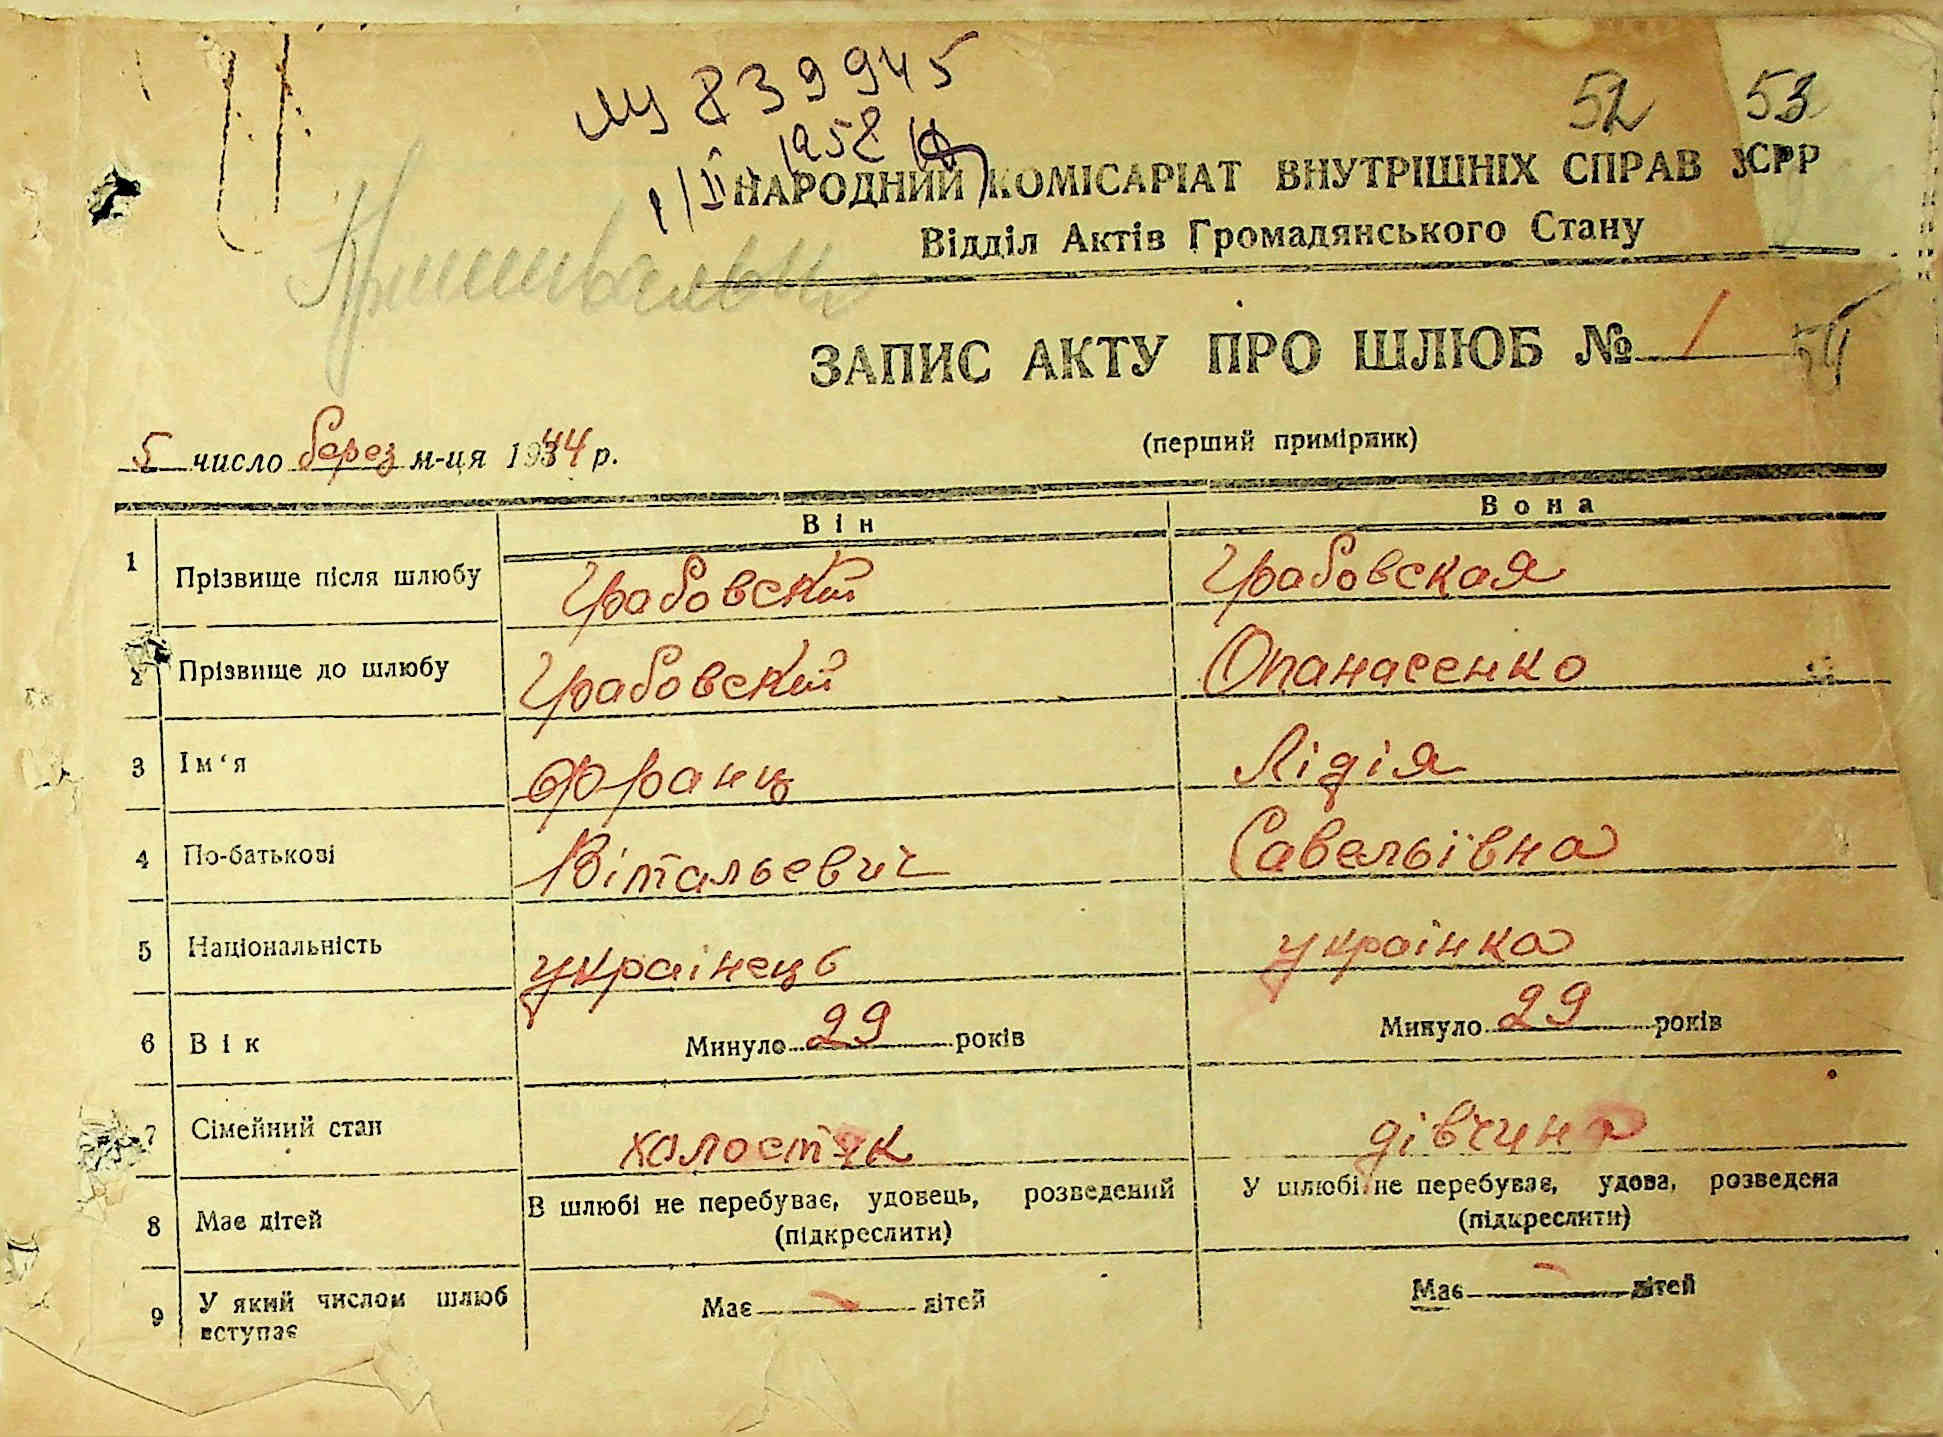 839945
1952
52 53
НАРОДНИЙ КОМІСАРІАТ ВНУТРІШНІХ СПРАВ УСРР
Відділ Актів Громадянського Стану
ЗАПИС АКТУ ПРО ШЛЮБ № 1
54
5 число берез м-ця 1944 р.
(перший примірник)
Він Вона
1 Прізвище після шлюбу Грабовский Грабовская
2 Прізвище до шлюбу Грабовский Опанасенко
3 Ім‘я Франц Лідія
4 По-батькові Вітальевич Савельївна
5 Національність українець українка
6 Вік Минуло 29 років Минуло 29 років
7 Сімейний стан холостяк дівчина
В шлюбі не перебуває, удовець, розведений У шлюбі не перебуває, удова, розведена
8 Має дітей (підкреслити) (підкреслити)
9 У який числом шлюб вступає Має - дітей Має - дітей